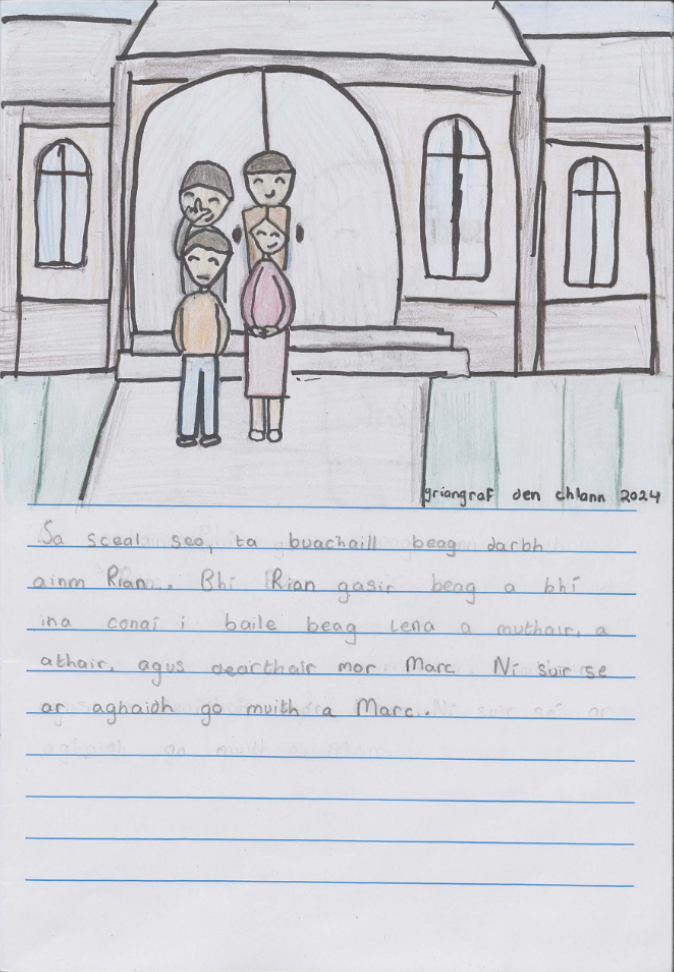 griangraf den chlann 2024
Sa sceal seo, ta buachaill beag darbh
ainm Rian.. Bhí Rian gasir beag a bhí
ina conaí i baile beag lena a muthair, a
athair, agus dearthair mor Marc Ní suir se
ar aghaidh go muith a Marc..